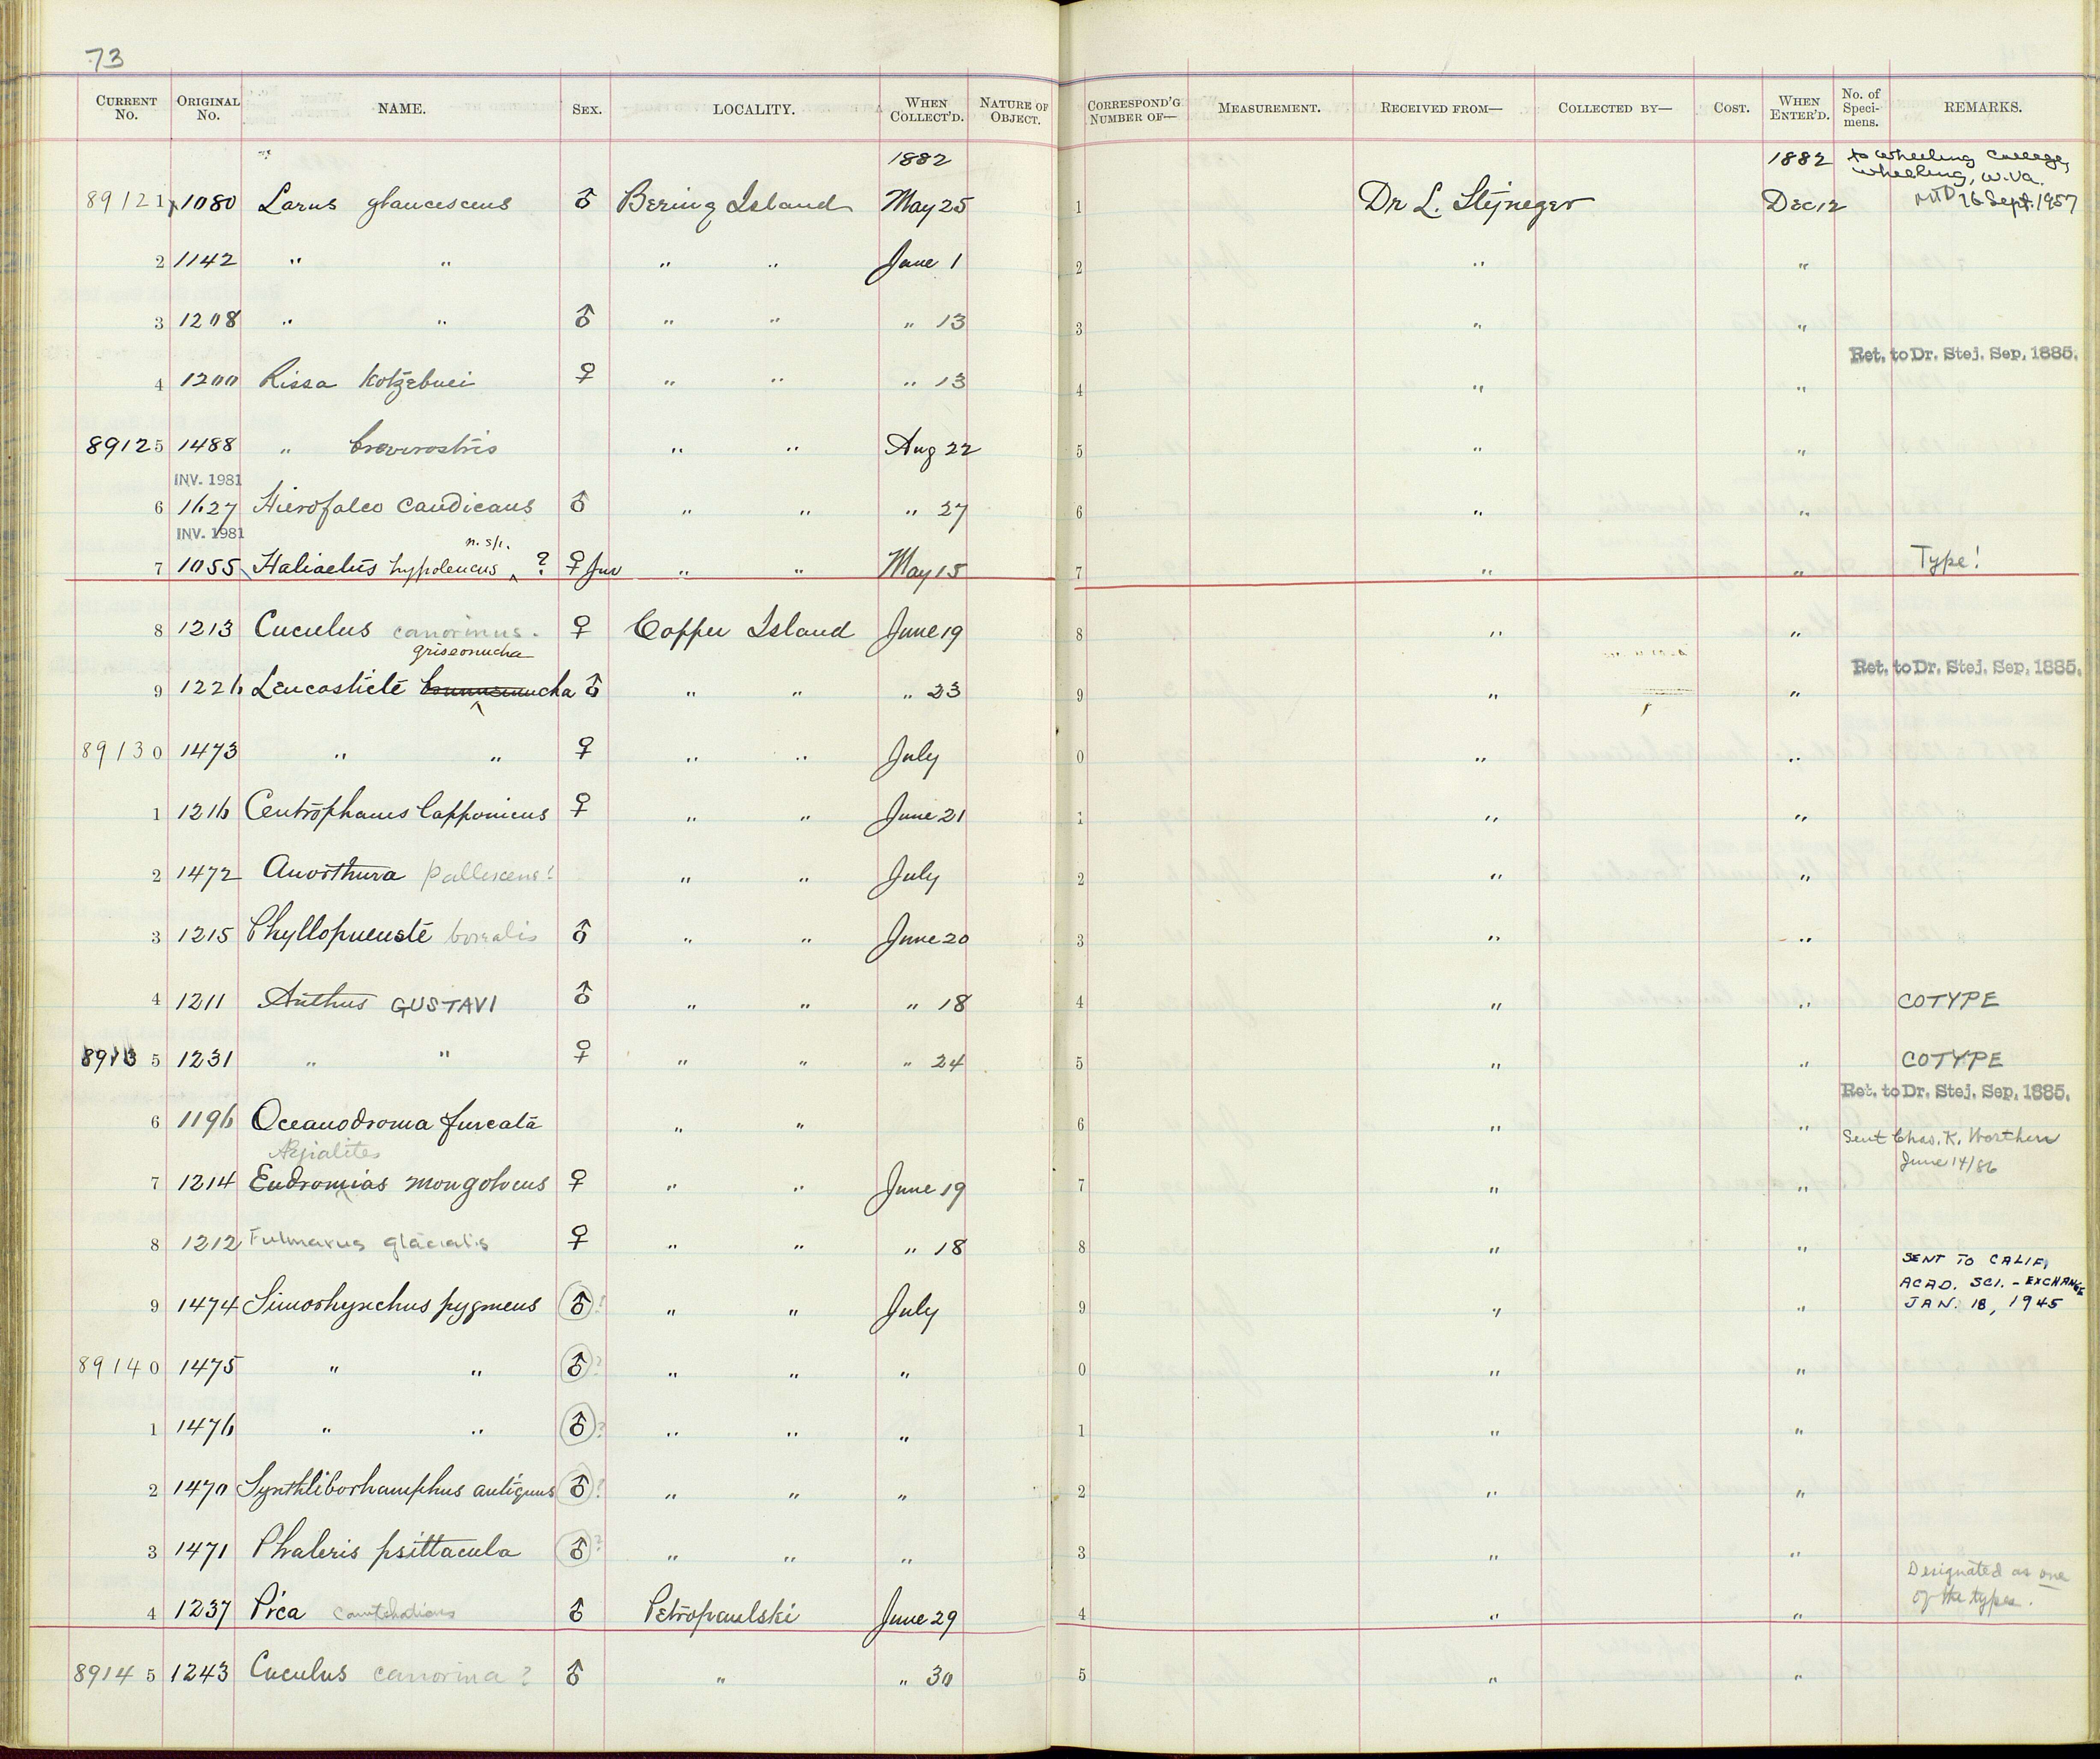 73
CURRENT No. ORIGINAL No. NAME. SEX. LOCALITY. WHEN COLLECT'D. NATURE OF OBJECT. CORRESPOND'G NUMBER OF— MEASUREMENT. RECEIVED FROM— COLLECTED BY— COST. WHEN ENTER'D. No. of Speci-mens. REMARKS.
1882 1882 to Wheeling College,
Wheeling, W. Va.
89121 1080 Larus glaucescens ♂ Bering Island May 25 1 Dr L. Stejneger Dec 12 16 Sept. 1957
2 1142 " " " " June 1 2 " "
3 1208 " " ♂ " " " 13 3 " "
Ret. to Dr. Stej. Sep. 1885.
4 1200 Rissa Kotzebuei ♀ " " " 13 4 " "
89125 1488 " brevirostris " " Aug 22 5 " "
INV. 1981
6 1627 Hierofalco candicans ♂ " " " 27 6 " "
INV. 1981 n. sp.
7 1055 Haliaetus hypoleucus ^ ? ♀ juv " " May 15 7 " " Type!
8 1213 Cuculus canorinus. ♀ Copper Island June 19 8 " "
griseonucha Ret. to Dr. Stej. Sep. 1885.
9 1226 Leucosticte brunneinucha ♂ " " " 23 9 " "
89130 1473 " " ♀ " " July 0 " "
1 1216 Centrophanes lapponicus ♀ " " June 21 1 " "
2 1472 Anorthura pallescens! " " July 2 " "
3 1215 Phyllopneuste borealis ♂ " " June 20 3 " "
4 1211 Anthus GUSTAVI ♂ " " " 18 4 " " COTYPE
89135 1231 " " ♀ " " " 24 5 " " COTYPE
Ret. to Dr. Stej. Sep. 1885.
6 1196 Oceanodroma furcata " " 6 " "
Sent Chas. K. Worthen
June 14/86
Aegialites
7 1214 Eudromias mongolicus ♀ " " June 19 7 " "
8 1212 Fulmarus glacialis ♀ " " " 18 8 " "
SENT TO CALIF.
ACAD. SCI. - EXCHANGE
JAN. 18, 1945
9 1474 Simorhynchus pygmeus ♂? " " July 9 " "
89140 1475 " " ♂? " " " 0 " "
1 1476 " " ♂? " " " 1 " "
2 1470 Synthliborhamphus antiquus ♂? " " " 2 " "
3 1471 Phaleris psittacula ♂? " " " 3 " "
Designated as one
of the types.
4 1237 Pica camtschatica ♂ Petropaulski June 29 4 " "
89145 1243 Cuculus canorina ? ♂ " " 30 5 " "